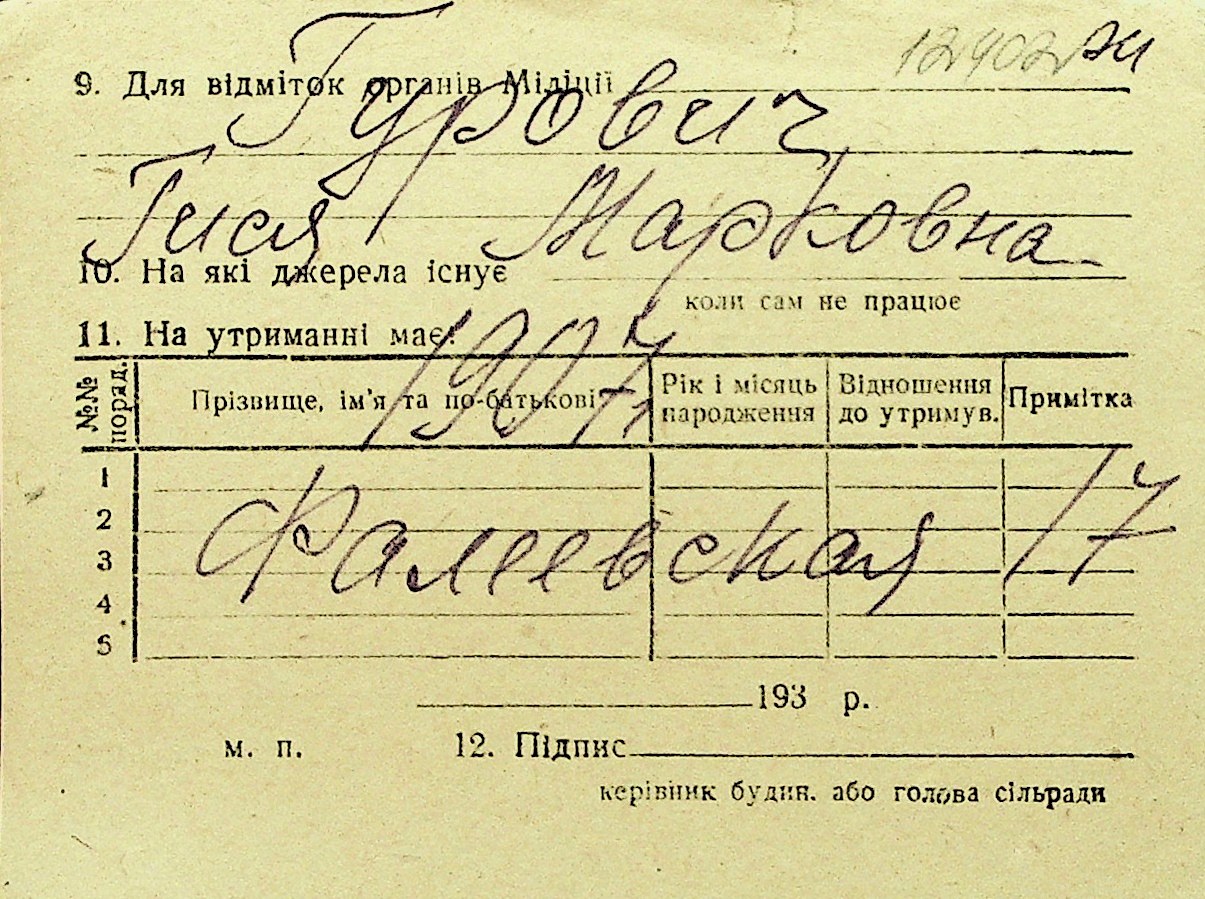 12402 эи
9. Для відміток органів Міліції
Гурович
Гися Марковна
10. На які джерела існує
коли сам не працює
11. На утриманні має:
1907
№№ поряд.
Прізвище, ім'я та по-батькові
Рік і місяць народження
Відношення до утримув.
Примітка
1
2
3
4
5
Фалеевская 17
193 р.
м. п. 12. Підпис
керівник будин. або голова сільради